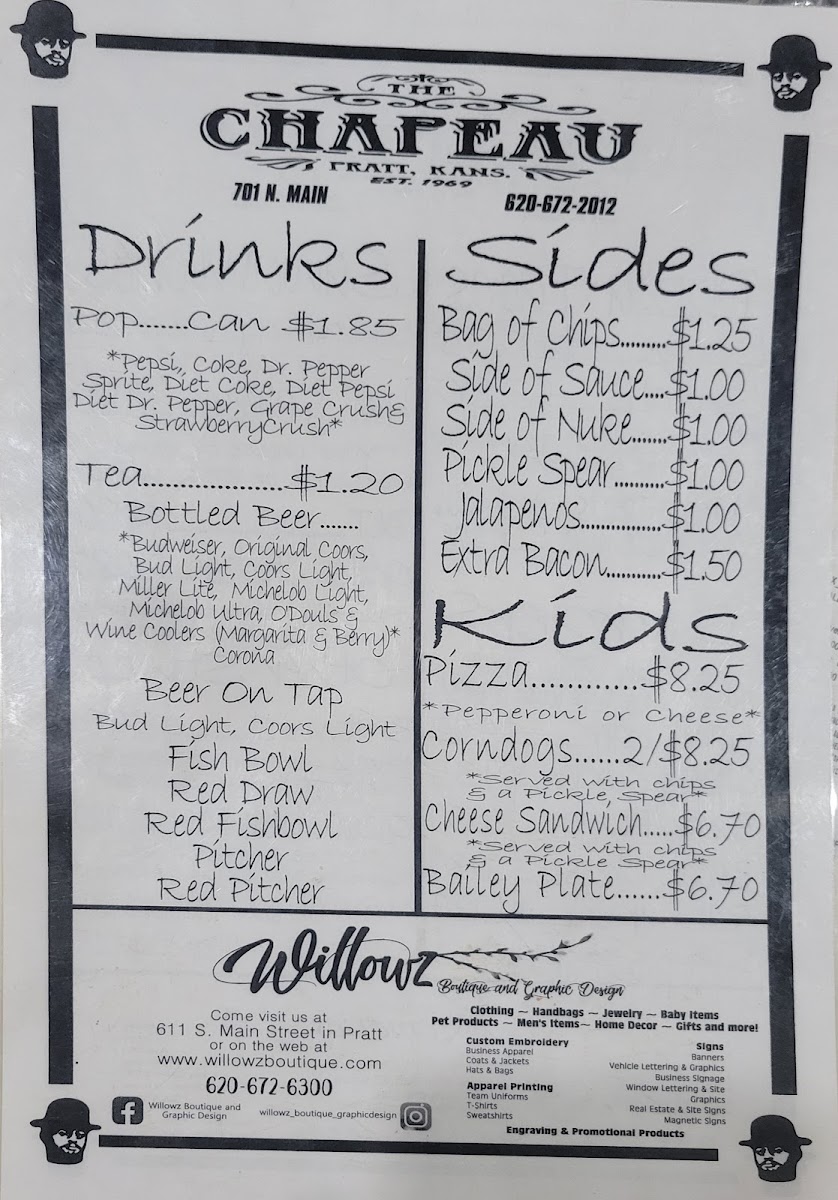 THE
CHAPEAU
PRATT, KANS.
EST. 1969
701 N. MAIN
620-672-2012
Drinks
Pop.......Can $1.85
*Pepsi, Coke, Dr. Pepper
Sprite, Diet Coke, Diet Pepsi
Diet Dr. Pepper, Grape Crush&
StrawberryCrush*
Tea...................$1.20
Bottled Beer.......
*Budweiser, Original Coors,
Bud Light, Coors Light,
Miller Lite, Michelob Light,
Michelob Ultra, O'Douls &
Wine Coolers (Margarita & Berry)*
Corona
Beer On Tap
Bud Light, Coors Light
Fish Bowl
Red Draw
Red Fishbowl
Pitcher
Red Pitcher
Sides
Bag of Chips.........$1.25
Side of Sauce....$1.00
Side of Nuke.......$1.00
Pickle Spear..........$1.00
Jalapenos................$1.00
Extra Bacon...........$1.50
Kids
Pizza............$8.25
*Pepperoni or Cheese*
Corndogs......2/$8.25
*Served with chips
& a Pickle, Spear*
Cheese Sandwich.....$6.70
*Served with chips
& a Pickle Spear*
Bailey Plate......$6.70
Willowz
Boutique and Graphic Design
Come visit us at
611 S. Main Street in Pratt
or on the web at
www.willowzboutique.com
620-672-6300
Willowz Boutique and
Graphic Design
willowz_boutique_graphicdesign
Clothing ~ Handbags ~ Jewelry ~ Baby Items
Pet Products ~ Men's Items~ Home Decor ~ Gifts and more!
Custom Embroidery
Business Apparel
Coats & Jackets
Hats & Bags
Apparel Printing
Team Uniforms
T-Shirts
Sweatshirts
Signs
Banners
Vehicle Lettering & Graphics
Business Signage
Window Lettering & Site
Graphics
Real Estate & Site Signs
Magnetic Signs
Engraving & Promotional Products